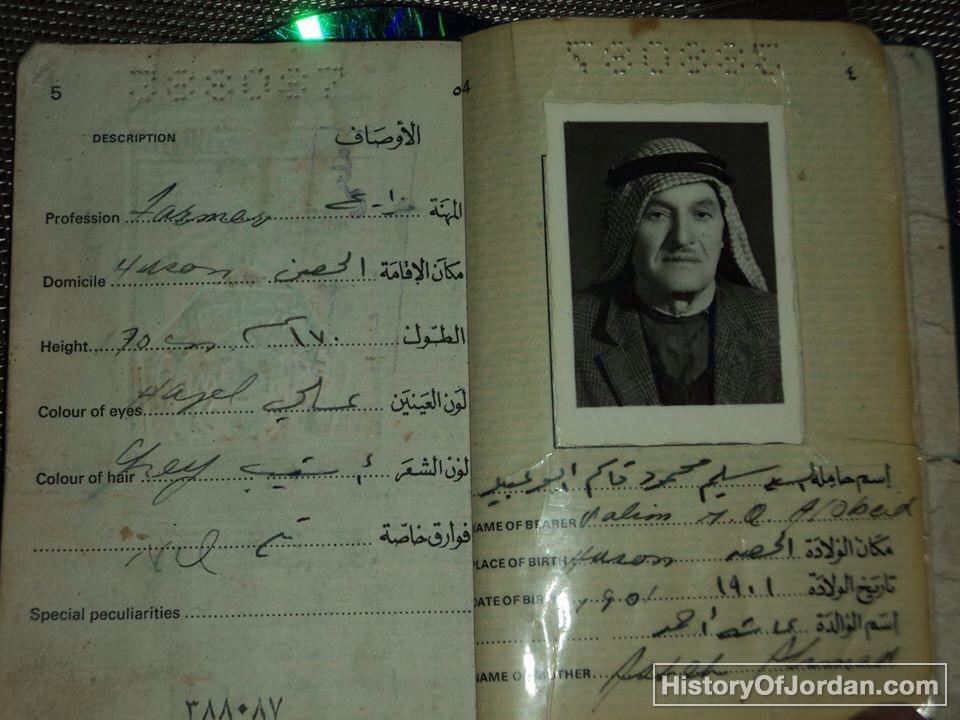 5 ٥
DESCRIPTION الأوصاف
Profession Farmer المهنة
Domicile Huson الحصن مكان الإقامة
Height 170 سم ١٧٠ الطول
Colour of eyes Hazel عسلي لون العينين
Colour of hair Grey أشيب لون الشعر
Nil فوارق خاصة
Special peculiarities
٣٨٨٠٨٧
٤
اسم حامله السيد سليم محمود قاسم ابو عبيد
NAME OF BEARER Salim M Q A/Obeid
PLACE OF BIRTH Huson الحصن مكان الولادة
DATE OF BIRTH 1901 ١٩٠١ تاريخ الولادة
عائشه أحمد اسم الوالدة
NAME OF MOTHER Ahmad
HistoryOfJordan.com